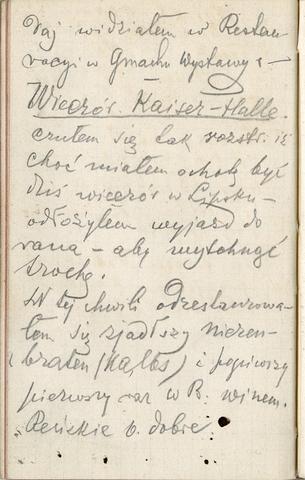 raj widziałem w Restau-
racyi w Gmachu Wystawy. –
Wieczór. Kaiser-Halle.
czułem się tak rozstr. iż
choć miałem ochotę być
dziś wieczór w Lipsku –
odłożyłem wyjazd do
rana – aby wytchnąć
trochę.
W tej chwili odrestaurowa-
łem się zjadłszy Nieren-
braten (Kalbs) i popiwszy
pierwszy raz w B. winem.
Reńskie b. dobre.